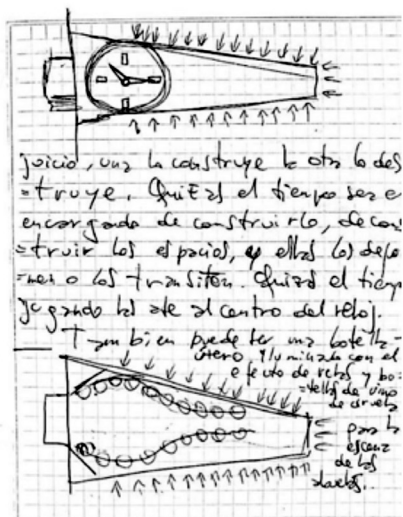 juicio, una la construye la otra lo des
=truye. Quizás el tiempo sea e
encargado de construirlo, de con
=truir los espacios, y ellas los depo
=nen o los transitan. Quizás el tiem
jugando las ate al centro del reloj.
También puede ser una botella-
útero. Iluminada con el
efecto de reloj y bo-
=tella de vino
de ciruela
para la
escena
de los
duelos.